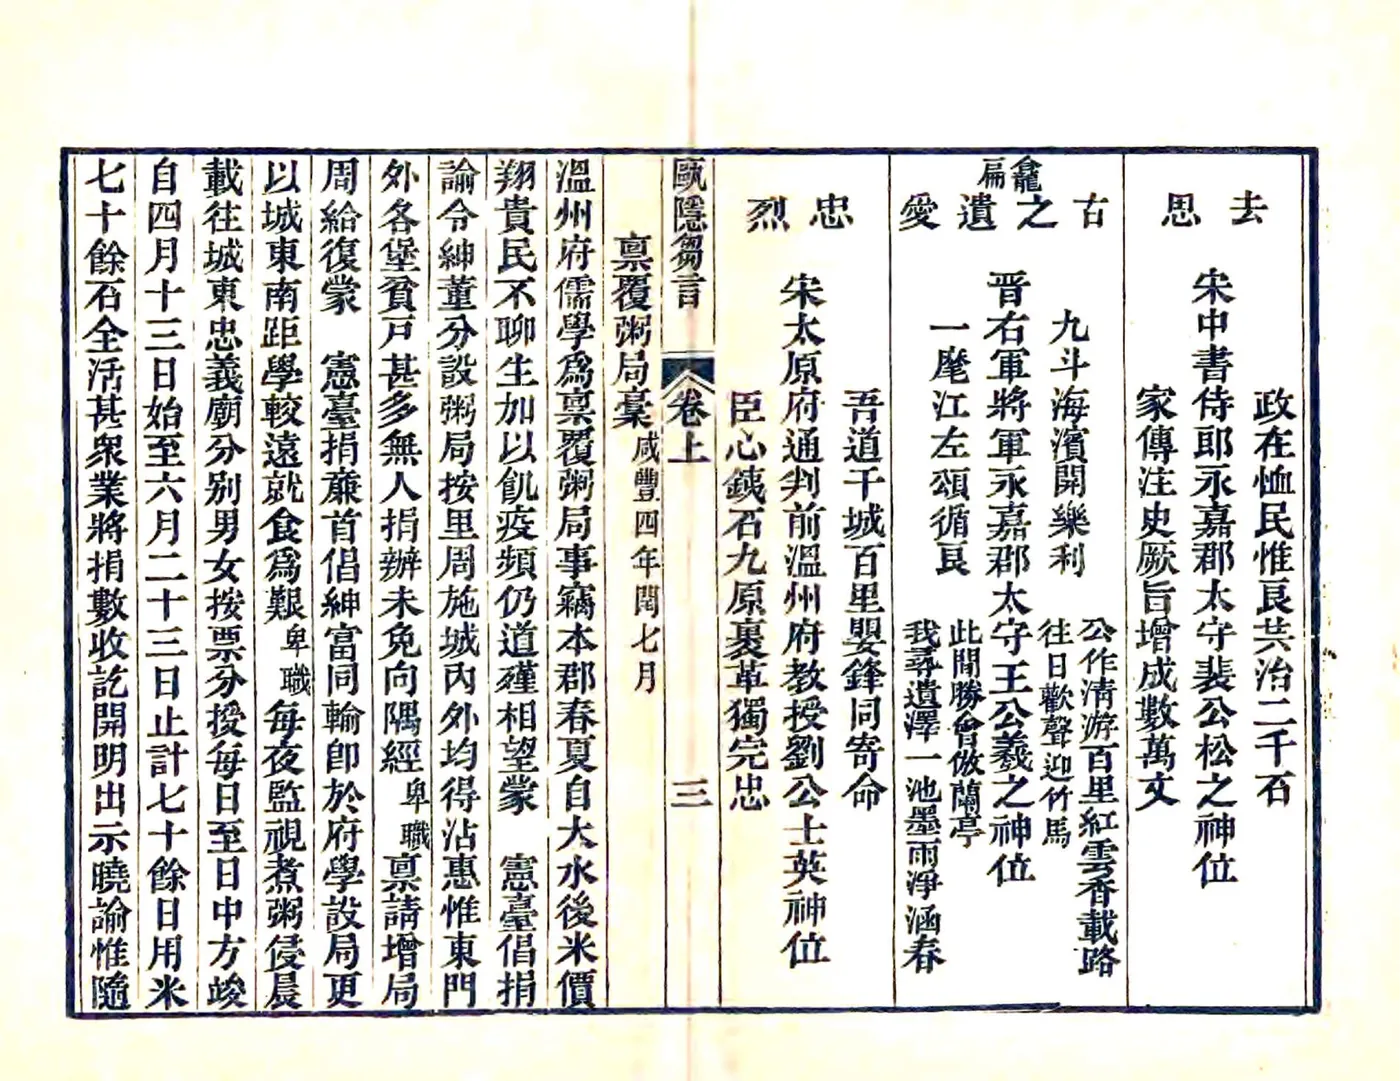 去思
政在恤民惟良共治二千石
宋中書侍郎永嘉郡太守裴公松之神位
家傳注史厥旨增成數萬文
龕扁
古之遺愛
公作清游百里紅雲香載路
往日歡聲迎竹馬
九斗海濱開樂利
晋右軍將軍永嘉郡太守王公羲之神位
一麾江左頌循良
此間勝會倣蘭亭
我尋遺澤一池墨雨淨涵春
忠烈
吾道干城百里嬰鋒同寄命
宋太原府通判前溫州府教授劉公士英神位
臣心鐵石九原裹革獨完忠
甌隱芻言
卷上
三
禀覆粥局稾咸豐四年閏七月
溫州府儒學爲禀覆粥局事竊本郡春夏自大水後米價
翔貴民不聊生加以飢疫頻仍道殣相望蒙　憲臺倡捐
諭令紳董分設粥局按里周施城內外均得沾惠惟東門
外各堡貧戸甚多無人捐辦未免向隅經卑職禀請增局
周給復蒙　憲臺捐廉首倡紳富同輸卽於府學設局更
以城東南距學較遠就食爲艱卑職每夜監視煮粥侵晨
載往城東忠義廟分别男女按票分授每日至日中方竣
自四月十三日始至六月二十三日止計七十餘日用米
七十餘石全活甚衆業將捐數收訖開明出示曉諭惟隨